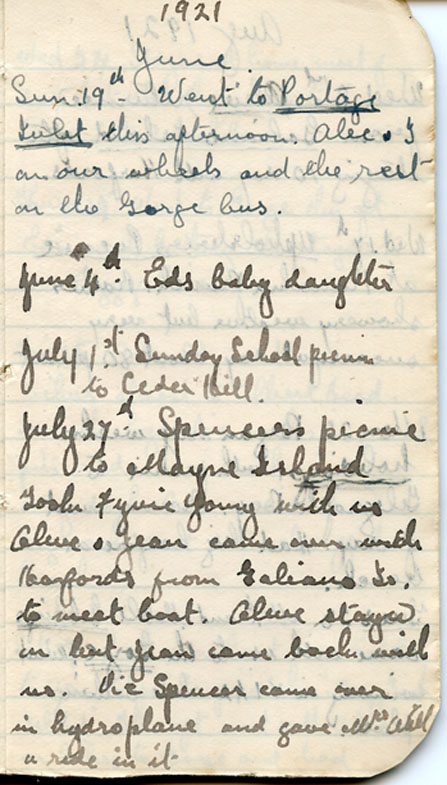 1921
June
Sun. 19th - Went to Portage
Inlet this afternoon. Alec & I
on our wheels and the rest
on the Gorge bus.
June 4d. Eds baby daughter
July 1st. Sunday School picnic
to Ceder Hill.
July 27d. Spencers picnic
to Mayne Island
Took Fyvie Young with us
Olive & Jean came over with
Harfords from Galiano Is.
to meet boat. Olive stayed
in but Jean came back with
us. Vic Spencer came over
in hydroplane and gave Mrs
a ride in it